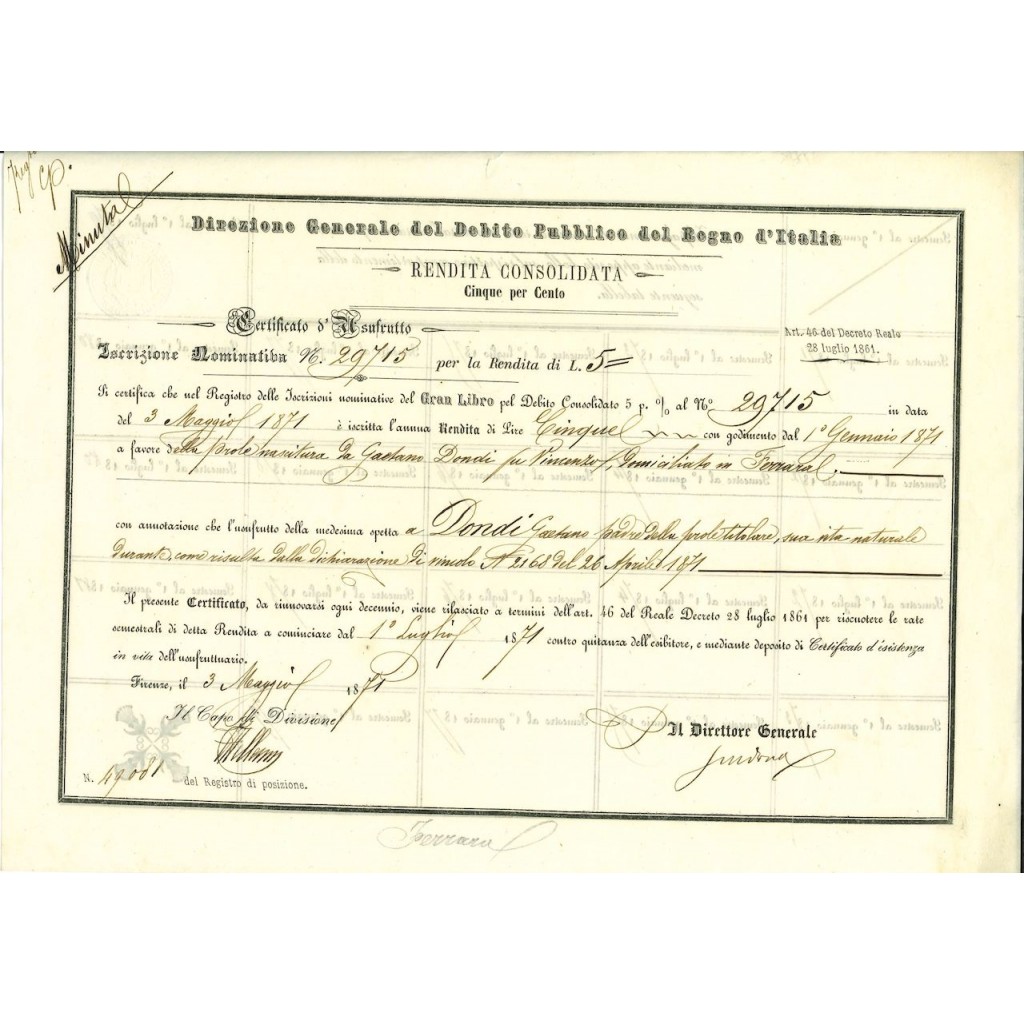 Minuta
Direzione Generale del Debito Pubblico del Regno d'Italia
RENDITA CONSOLIDATA
Cinque per Cento
Certificato d'Usufrutto
Art. 46 del Decreto Reale
28 luglio 1861.
Iscrizione Nominativa N. 29715 per la Rendita di L. 5=
Si certifica che nel Registro delle Iscrizioni nominative del Gran Libro pel Debito Consolidato 5 p. % al N.o 29715 in data
del 3 Maggio 1871 è iscritta l'annua Rendita di Lire Cinque con godimento dal 1º Gennaio 1871
a favore della prole nascitura da Gaetano Dondi fu Vincenzo, domiciliato in Ferrara.
con annotazione che l'usufrutto della medesima spetta a Dondi Gaetano padre della prole titolare, sua vita naturale
durante, come risulta dalla dichiarazione di vincolo N 2168 del 26 Aprile 1871
Il presente Certificato, da rinnovarsi ogni decennio, viene rilasciato a termini dell'art. 46 del Reale Decreto 28 luglio 1861 per riscuotere le rate
semestrali di detta Rendita a cominciare dal 1º Luglio 1871 contro quitanza dell'esibitore, e mediante deposito di Certificato d'esistenza
in vita dell'usufruttuario.
Firenze, il 3 Maggio 1871
Il Capo di Divisione
Il Direttore Generale
N. 49081 del Registro di posizione.
Ferrara